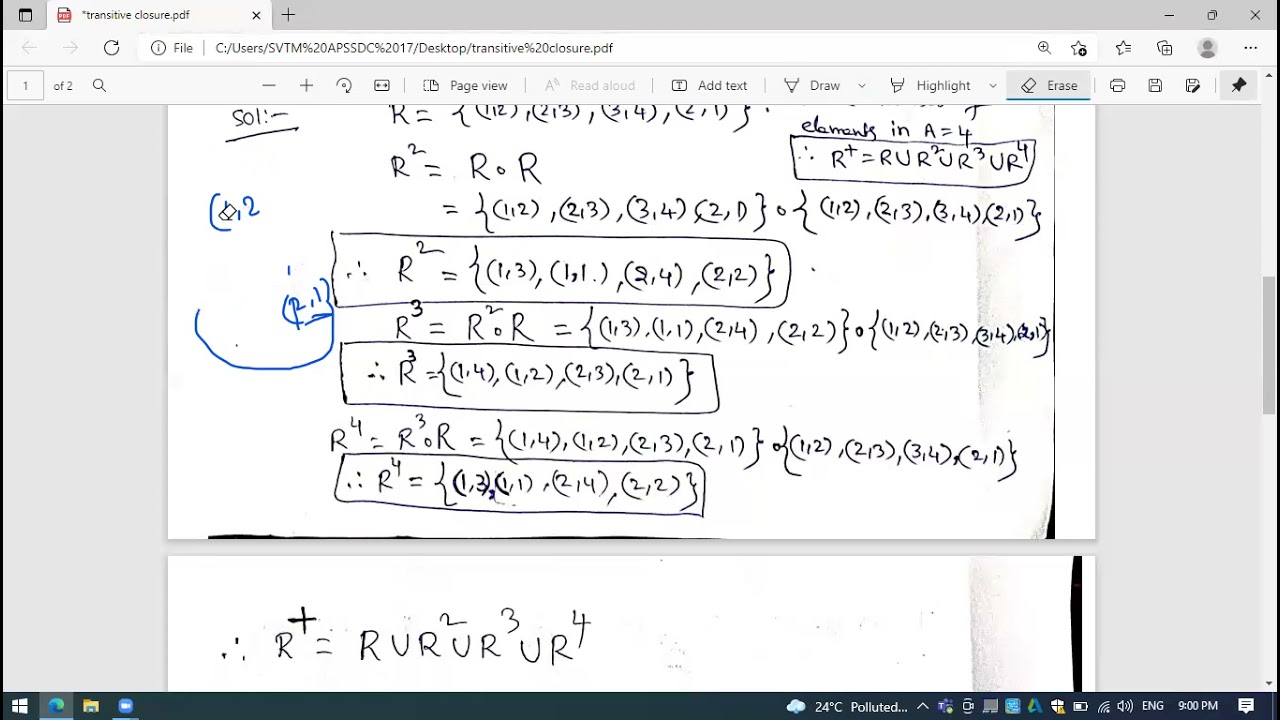 *transitive closure.pdf
File C:/Users/SVTM%20APSSDC%2017/Desktop/transitive%20closure.pdf
1 of 2 Page view Read aloud Add text Draw Highlight Erase
Sol:-
R = {(1,2),(2,3),(3,4),(2,1)}.
elements in A = 4
∴ R⁺ = R∪R²∪R³∪R⁴
R² = R∘R
(1,2
= {(1,2),(2,3),(3,4),(2,1)}∘{(1,2),(2,3),(3,4),(2,1)}
∴ R² = {(1,3),(1,1),(2,4),(2,2)}
(2,1)
R³ = R²∘R = {(1,3),(1,1),(2,4),(2,2)}∘{(1,2),(2,3),(3,4),(2,1)}
∴ R³ = {(1,4),(1,2),(2,3),(2,1)}
R⁴ = R³∘R = {(1,4),(1,2),(2,3),(2,1)}∘{(1,2),(2,3),(3,4),(2,1)}
∴ R⁴ = {(1,3),(1,1),(2,4),(2,2)}
∴ R⁺ = R∪R²∪R³∪R⁴
24°C Polluted... ENG 9:00 PM